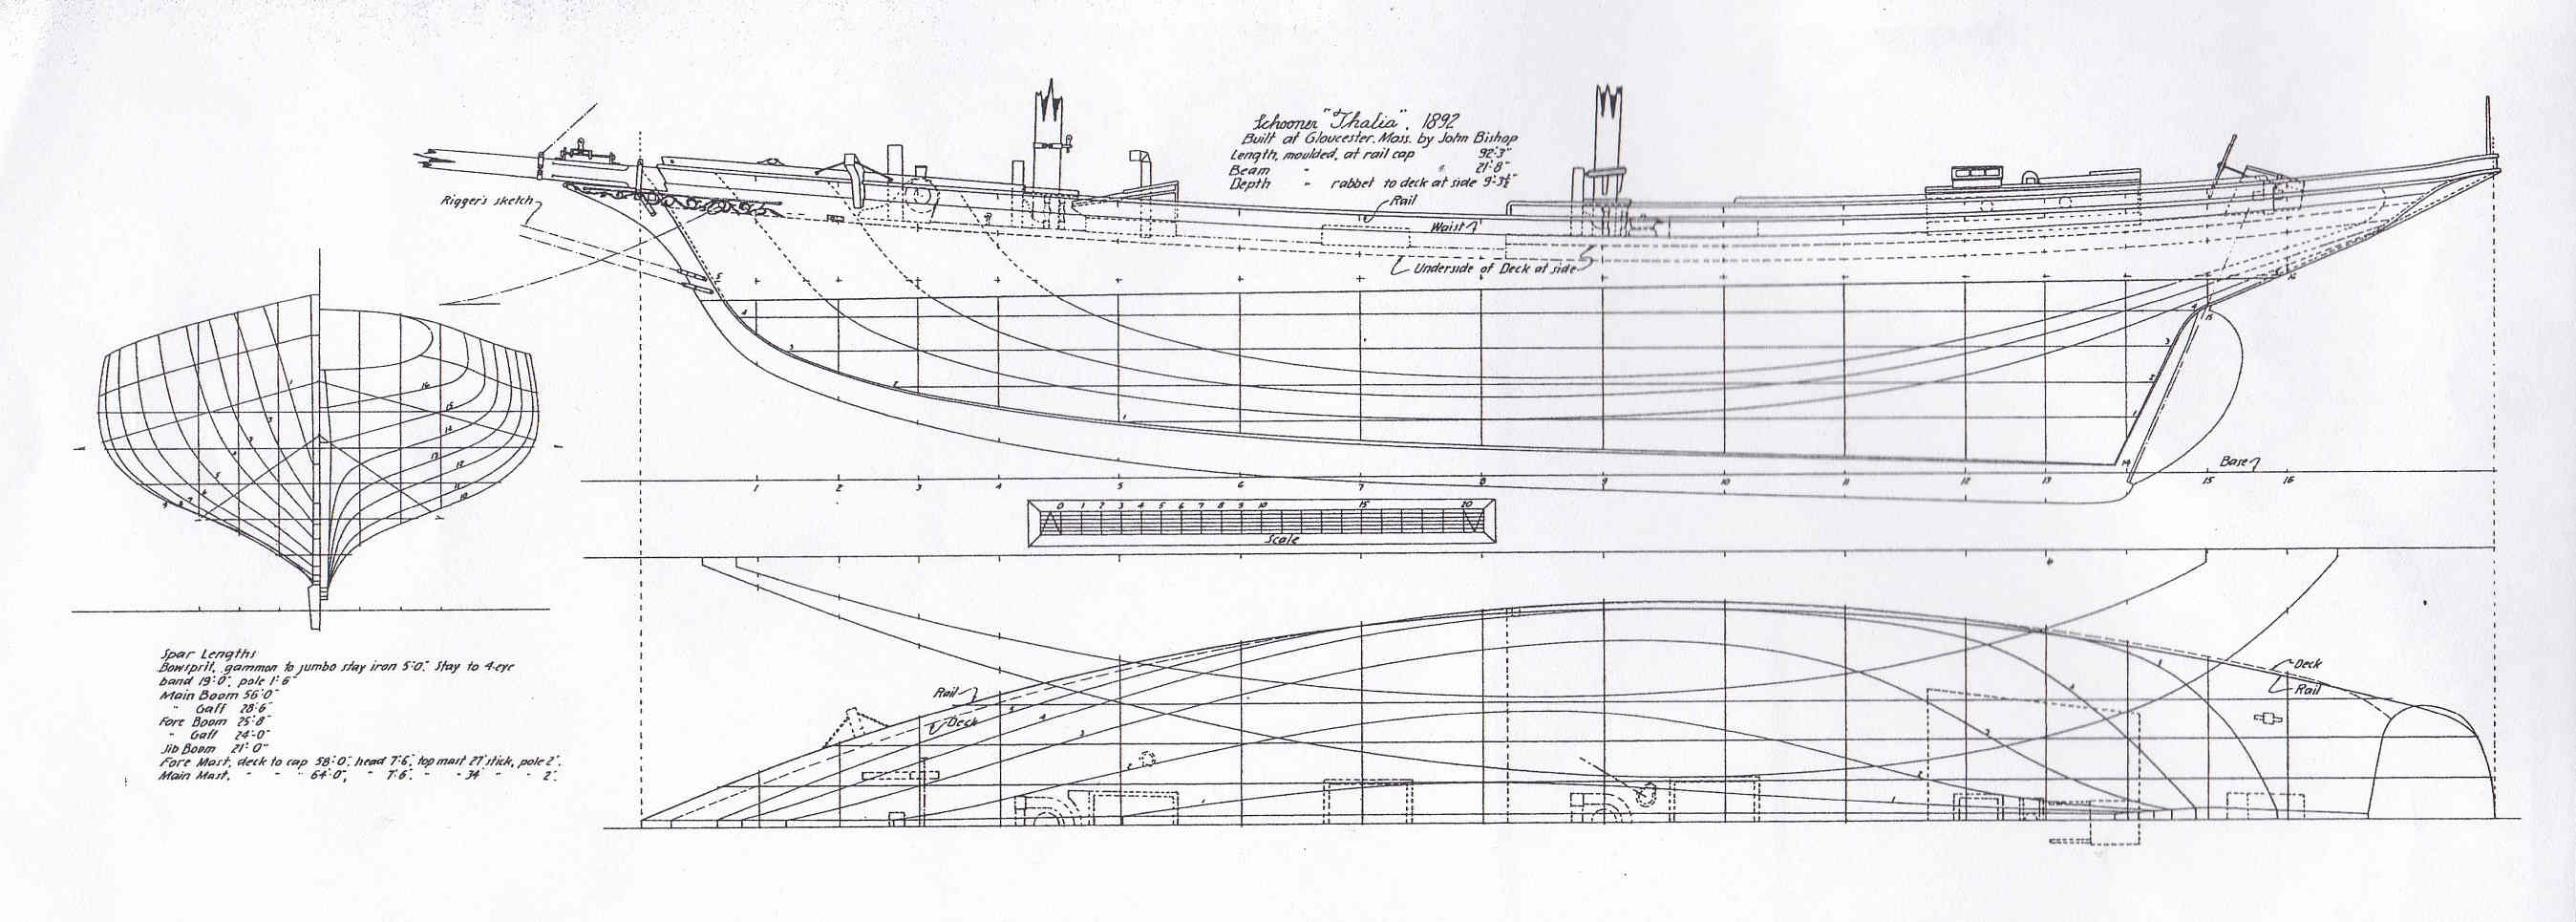 Schooner "Thalia". 1892
Built at Gloucester, Mass. by John Bishop
Length, moulded, at rail cap 92'-3"
Beam " " 21'-8"
Depth " rabbet to deck at side 9'-3½"
Rigger's sketch
Rail
Waist
Underside of Deck at side
5
4
3
2
1
4
3
2
1
14
15
16
Base
1 2 3 4 5 6 7 8 9 10 11 12 13 15 16
0 1 2 3 4 5 6 7 8 9 10 15 20
Scale
Spar Lengths
Bowsprit, gammon to jumbo stay iron 5'-0". Stay to 4-eye
band 19'-0", pole 1'-6"
Main Boom 56'-0"
" Gaff 28'-6"
Fore Boom 25'-8"
" Gaff 24'-0"
Jib Boom 21'-0"
Fore Mast, deck to cap 58'-0", head 7'-6", top mast 27' stick, pole 2'.
Main Mast, " " " 64'-0", " 7'-6" " " 34' " " 2'.
Rail
Deck
Deck
Rail